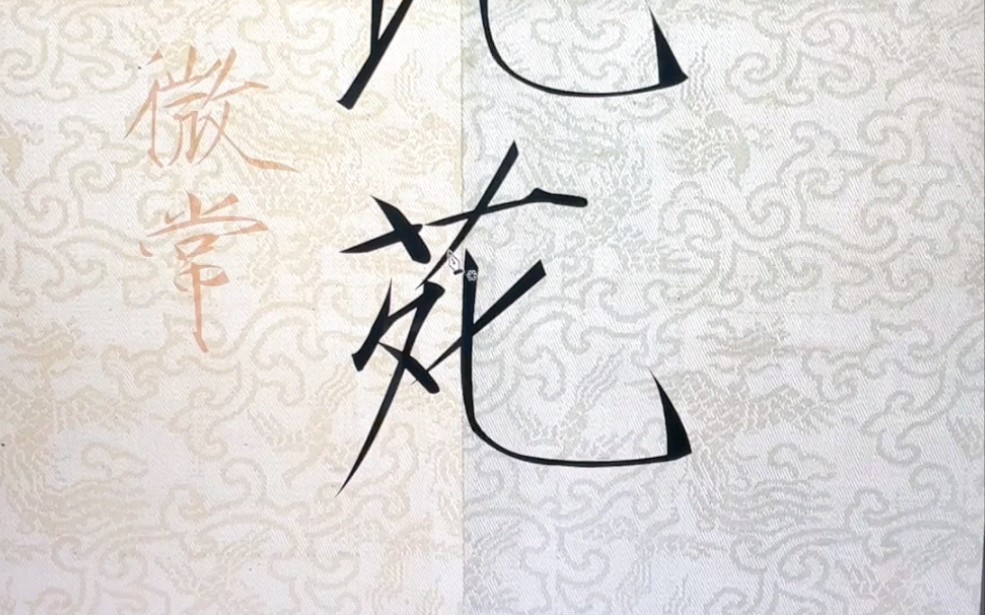 苑
微常